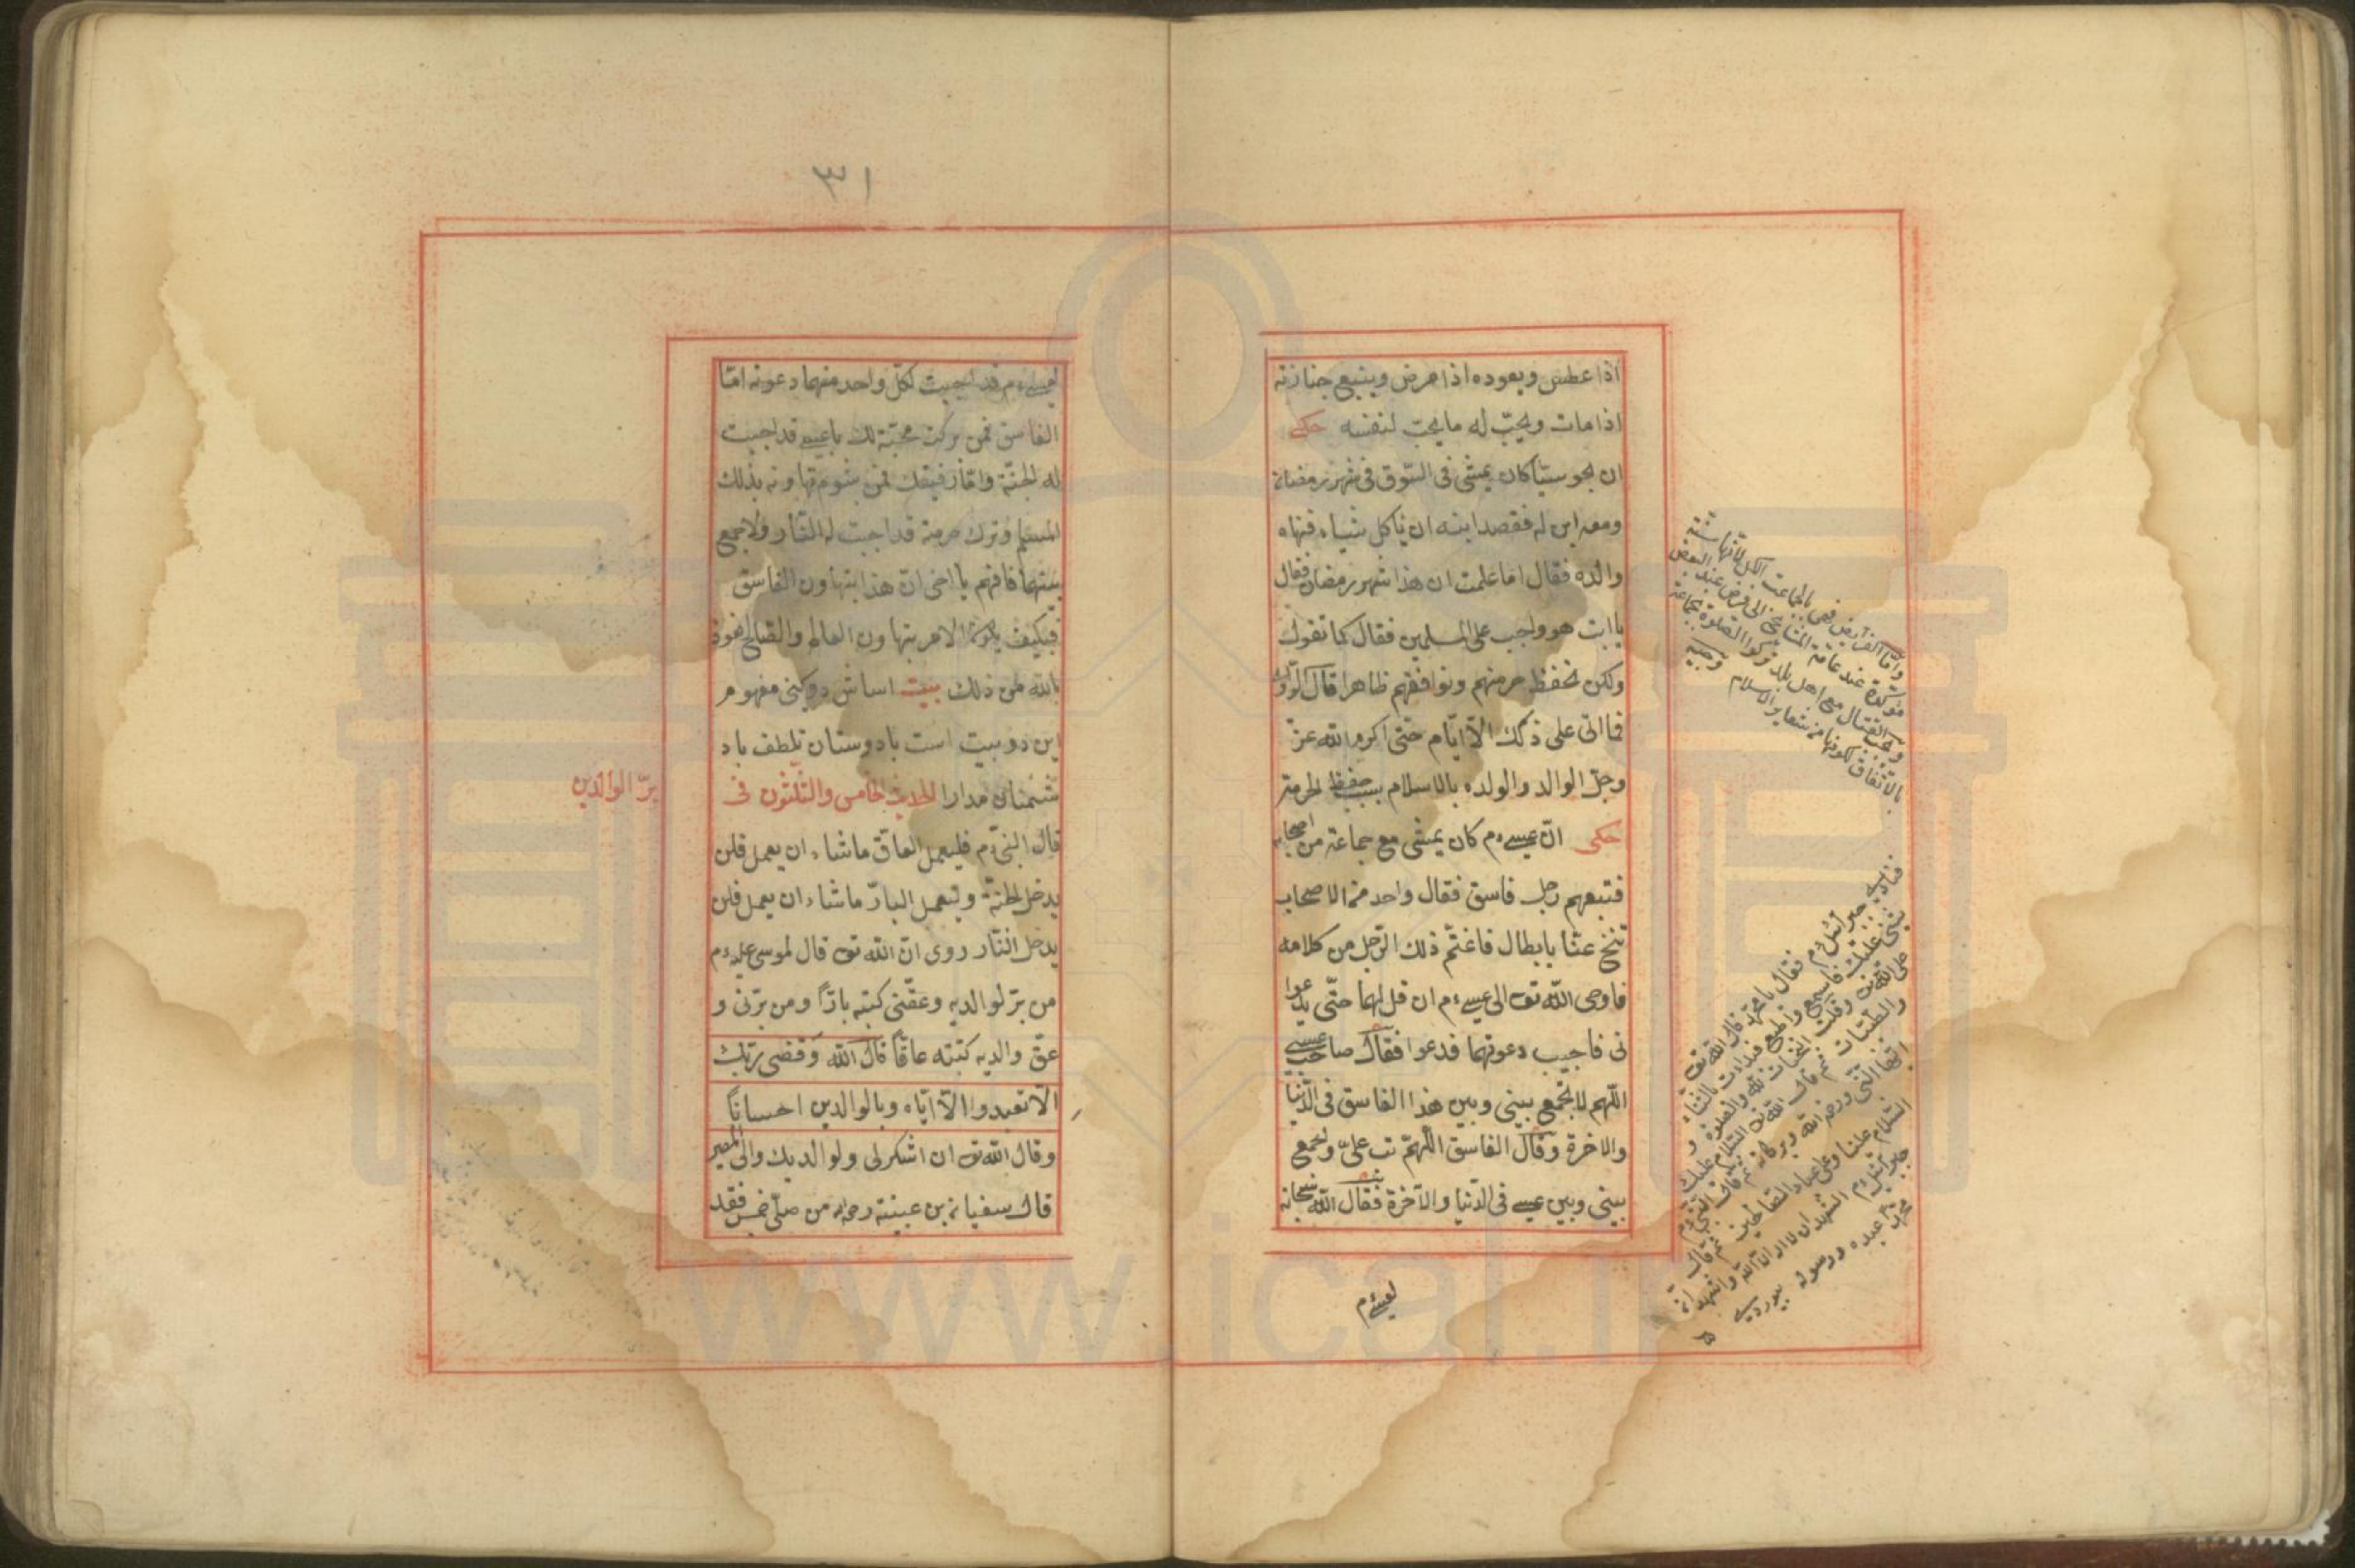 اذا عطس ويعوده اذا مرض ويتبع جنازته
اذا مات ويحبّ له ما يحبّ لنفسه حكى
ان مجوسيّا كان يمشى فى السّوق فى شهر رمضان
ومعه ابن له فقصد ابنه ان يأكل شيأ فنهاه
والده فقال اما علمت ان هذا شهر رمضان فقال
يا ابت هو واجب على المسلمين فقال كما تقول
ولكن نحفظ حرمتهم ونوافقهم ظاهرا قال الراوى
فما اتى على ذلك الّا ايّام حتى اكرم الله عزّ
وجلّ الوالد والولد بالاسلام بسبب حفظ الحرمة
حكى انّ عيسى ءم كان يمشى مع جماعة من اصحابه
فتبعهم رجل فاسق فقال واحد من الاصحاب
تنحّ عنّا يا بطال فاغتمّ ذلك الرّجل من كلامه
فاوحى الله تع الى عيسى ءم ان قل لهما حتّى يدعوا
نى فاجيب دعوتهما فدعوا فقال صاحب عيسى
اللّهم لا تجمع بينى وبين هذا الفاسق فى الدّنيا
والاخرة وقال الفاسق اللّهمّ تب علىّ واجمع
بينى وبين عيسى فى الدّنيا والآخرة فقال الله سبحانه
لعيسى ءم
وامّا الفرايض فهى بالجماعت لانّها سنّة
مؤكّدة عند عامّة المشايخ الى فرض عند البعض
ويجب القتال مع اهل بلد تركوا الصلوة بجماعة
بالاتّفاق لكونها من شعاير الاسلام
فناديه جبرائيل ءم فقال يا محمّد قال الله تع
على الله تع وقلت التحيّات لله والصلوة و
والطّيّبات ثم قال الله تع السّلام عليك
ايّها النّبىّ ورحمة الله وبركاته ثم قال النبىّ ءم
السّلام علينا وعلى عباد الله الصّالحين ثم قال
جبرائيل ءم اشهد ان لا اله الّا الله واشهد انّ
محمّدا عبده ورسوله
٣١
لعيسى ءم قد اجبت لكلّ واحد منهما دعوته امّا
الفاسق فمن بركت محبّته لك يا عيسى قد اجبت
له الجنّة وامّا رفيقك فمن شوم تهاونه بذلك
المسلم وترك حرمته قد اجبت له النّار ولا اجمع
بينهما فافهم يا اخى انّ هذا بتهاون الفاسق
فيكيف يكون الامر بتهاون العالم والصّالح نعوذ
بالله من ذلك بيت اساش دو كيتى مفهوم
اين دو بيت است با دوستان تلطف با د
شمنان مدارا الحديث الخامس والثّلثون فى
برّ الوالدين
قال النبىّ ءم فليعمل العاقّ ما شاء ان يعمل فلن
يدخل الجنّة وليعمل البارّ ما شاء ان يعمل فلن
يدخل النّار روى انّ الله تع قال لموسى عليه ءم
من برّ لوالديه وعقّنى كتبته بارّا ومن برّنى و
عقّ والديه كتبته عاقّا قال الله وقضى ربّك
الّا تعبدوا الّا ايّاه وبالوالدين احسانا
وقال الله تع ان اشكر لى ولوالديك والىّ المصير
قال سفيان بن عيينة رحمه من صلّى خمس فقد